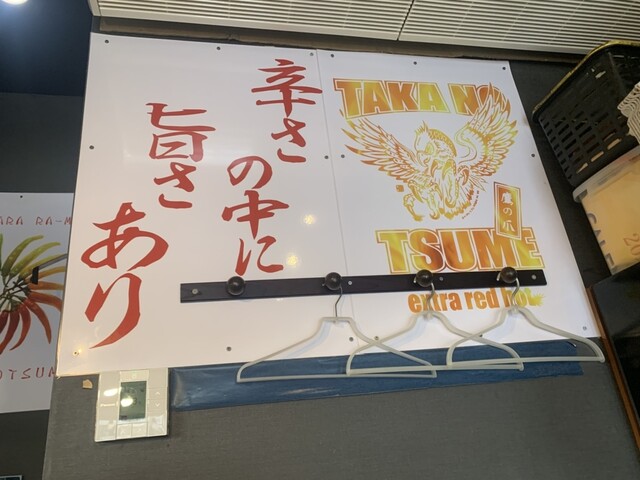 辛さ
の中に
旨さ
あり
TAKA NO
鷹の爪
TSUME
extra red hot
ARA RA-M
OTSUM